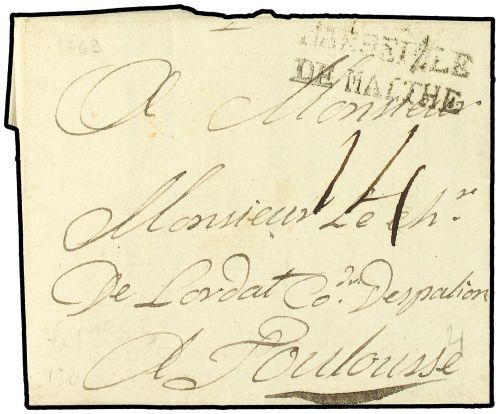 1763
MARSEILLE
DE MALTHE
A Monsieur
14
Monsieur Le Chr.
De Lordat Co.dr Despalion
A Toulousse